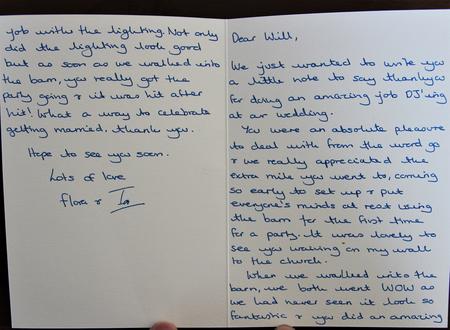 Dear Will,
We just wanted to write you
a little note to say thankyou
for doing an amazing job DJ'ing
at our wedding.
You were an absolute pleasure
to deal with from the word go
& we really appreciated the
extra mile you went to, coming
so early to set up & put
everyone's minds at rest using
the barn for the first time
for a party. It was lovely to
see you waving on my walk
to the church.
When we walked into the
barn, we both went WOW as
we had never seen it look so
fantastic & you did an amazing
job with the lighting. Not only
did the lighting look good
but as soon as we walked into
the barn, you really got the
party going & it was hit after
hit! What a way to celebrate
getting married. Thank you.
Hope to see you soon.
Lots of love
Flora &